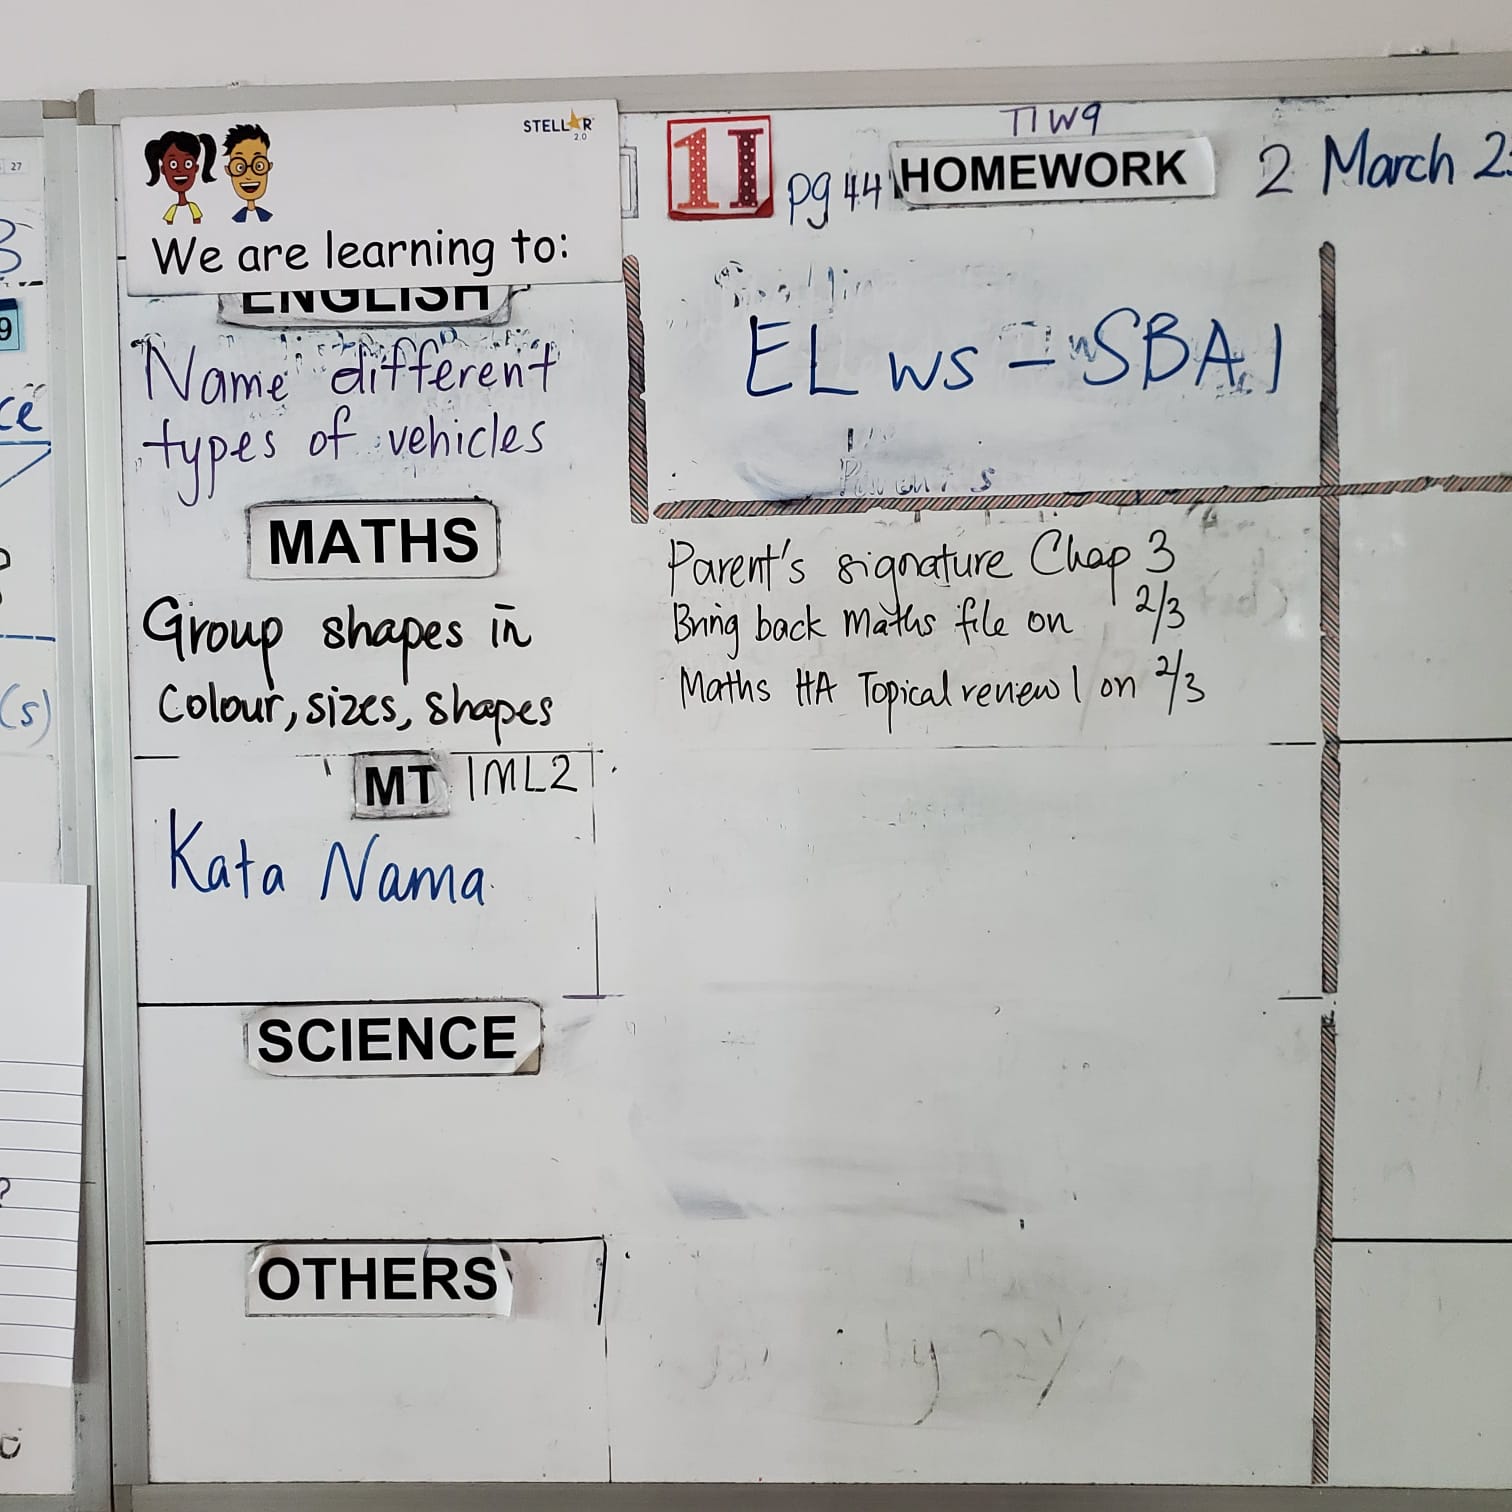 STELLAR
2.0
We are learning to:
ENGLISH
Name different
types of vehicles
MATHS
Group shapes in
Colour, sizes, shapes
MT 1ML2
Kata Nama
SCIENCE
OTHERS
T1W9
1I pg 44 HOMEWORK 2 March
EL ws - SBA 1
Parent's signature Chap 3
Bring back Maths file on 2/3
Maths HA Topical review 1 on 2/3
27
9
ce
(s)
?